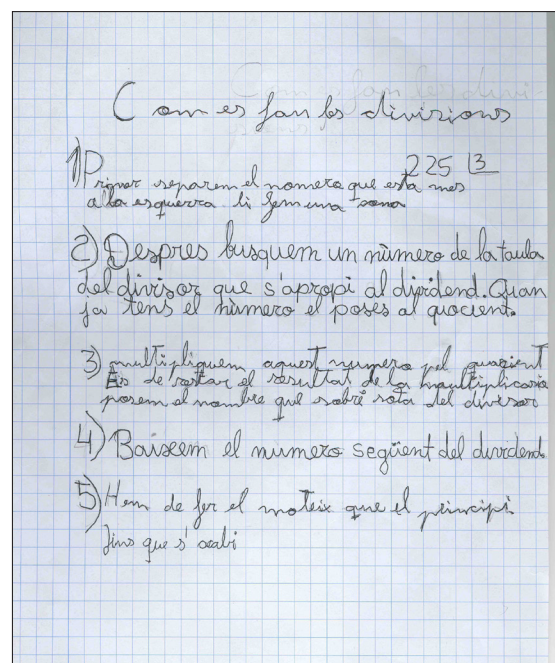 Com es fan les divisions
225 3
1) Primer separem el nomero que està mes
a la esquerra li fem una
2) Despres busquem un número de la taula
del divisor que s'apropi al dividend. Quan
ja tens el número el poses al quocient.
3) multipliquem aquest numero pel
És de restar el resultat de la
posem el nombre que sobri sota del divisor
4) Baixem el numero següent del dividend
5) Hem de fer el mateix que el principi
fins que s'acabi